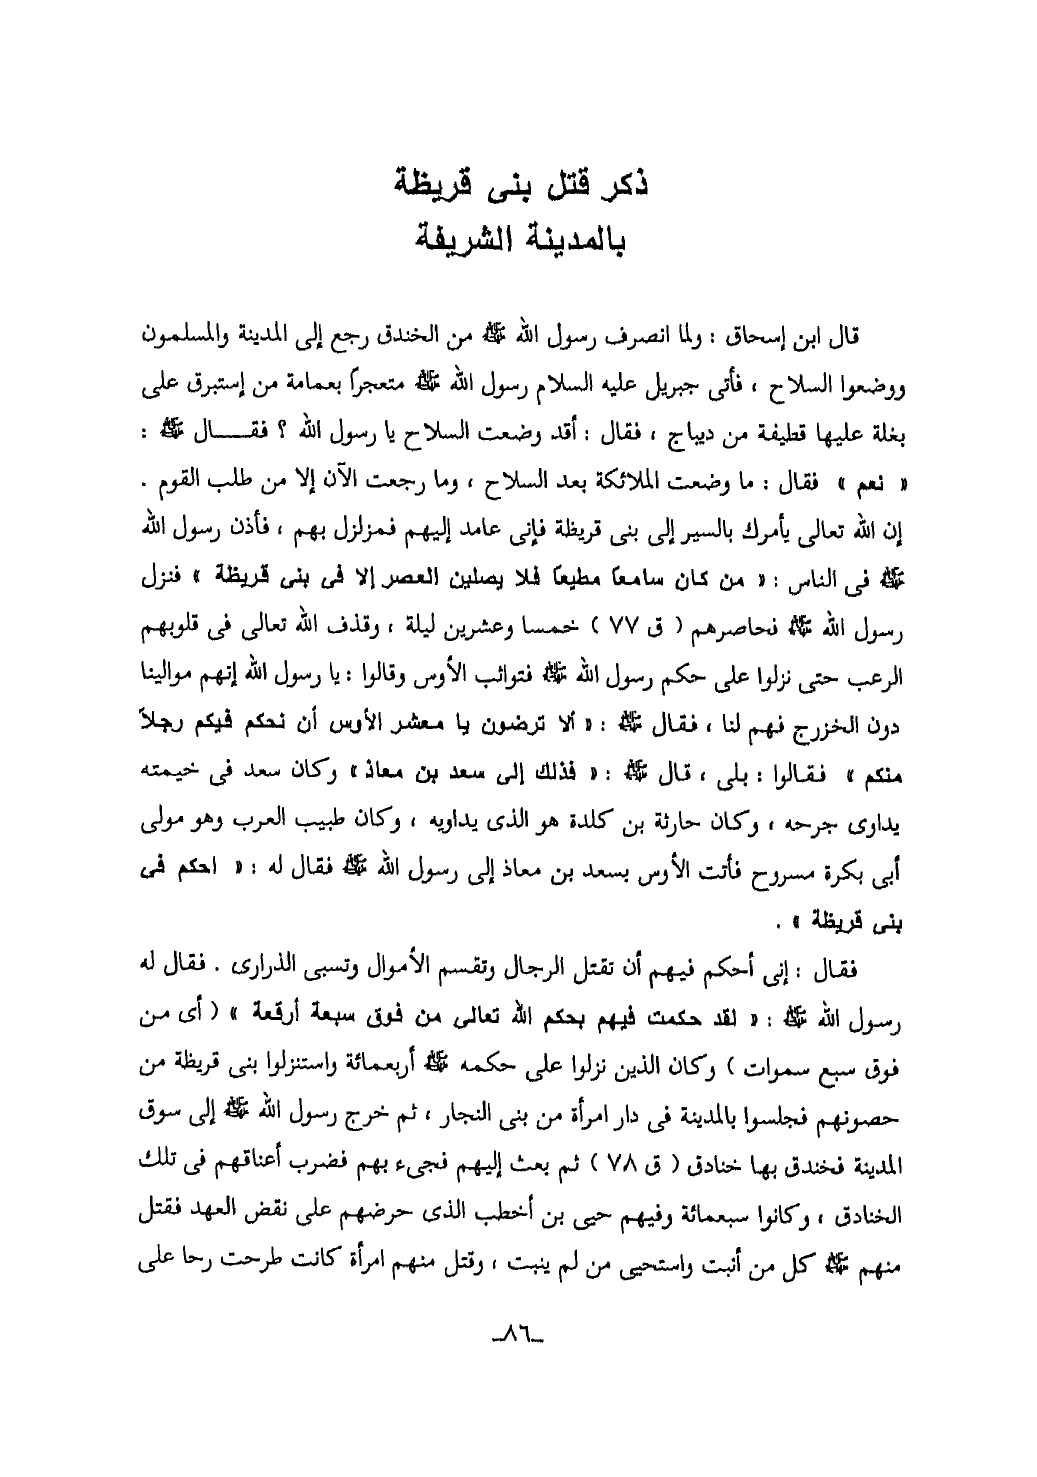 ذكر قتل بنى قريظة
بالمدينة الشريفة
قال ابن إسحاق : ولما انصرف رسول الله ﷺ من الخندق رجع إلى المدينة والمسلمون
ووضعوا السلاح ، فأتى جبريل عليه السلام رسول الله ﷺ متعجراً بعمامة من إستبرق على
بغلة عليها قطيفة من ديباج ، فقال : أقد وضعت السلاح يا رسول الله ؟ فقـــــال ﷺ :
« نعم » فقال : ما وضعت الملائكة بعد السلاح ، وما رجعت الآن إلا من طلب القوم .
إن الله تعالى يأمرك بالسير إلى بنى قريظة فإنى عامد إليهم فمزلزل بهم ، فأذن رسول الله
ﷺ فى الناس : « من كان سامعا مطيعا فلا يصلين العصر إلا فى بنى قريظة » فنزل
رسول الله ﷺ فحاصرهم ( ق ٧٧ ) خمسا وعشرين ليلة ، وقذف الله تعالى فى قلوبهم
الرعب حتى نزلوا على حكم رسول الله ﷺ فتواثب الأوس وقالوا : يا رسول الله إنهم موالينا
دون الخزرج فهم لنا ، فقال ﷺ : « ألا ترضون يا معشر الأوس أن نحكم فيكم رجلاً
منكم » فقالوا : بلى ، قال ﷺ : « فذلك إلى سعد بن معاذ » وكان سعد فى خيمته
يداوى جرحه ، وكان حارثة بن كلدة هو الذى يداويه ، وكان طبيب العرب وهو مولى
أبى بكرة مسروح فأتت الأوس بسعد بن معاذ إلى رسول الله ﷺ فقال له : « احكم فى
بنى قريظة » .
فقال : إنى أحكم فيهم أن تقتل الرجال وتقسم الأموال وتسبى الذرارى . فقال له
رسول الله ﷺ : « لقد حكمت فيهم بحكم الله تعالى من فوق سبعة أرقعة » ( أى من
فوق سبع سموات ) وكان الذين نزلوا على حكمه ﷺ أربعمائة واستنزلوا بنى قريظة من
حصونهم فجلسوا بالمدينة فى دار امرأة من بنى النجار ، ثم خرج رسول الله ﷺ إلى سوق
المدينة فخندق بها خنادق ( ق ٧٨ ) ثم بعث إليهم فجىء بهم فضرب أعناقهم فى تلك
الخنادق ، وكانوا سبعمائة وفيهم حيى بن أخطب الذى حرضهم على نقض العهد فقتل
منهم ﷺ كل من أنبت واستحيى من لم ينبت ، وقتل منهم امرأة كانت طرحت رحا على
ـ٨٦ـ